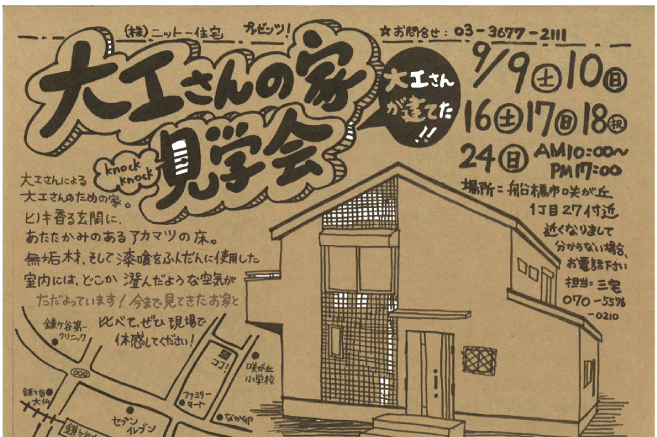 (株)ニットー住宅 プレゼンツ!
☆お問合せ：03-3677-2111
大工さんの家
見学会
大工さん
が建てた
!!
9/9(土)10(日)
16(土)17(日)18(祝)
24(日) AM10:00~
PM17:00
場所=船橋市咲が丘
1丁目27付近
近くなりまして
分からない場合、
お電話下さい
担当=三宅
070-5596
-0210
knock
knock
大工さんによる
大工さんのための家。
ヒノキ香る玄関に、
あたたかみのあるアカマツの床。
無垢材、そして漆喰をふんだんに使用した
室内には、どこか澄んだような空気が
ただよっています!今まで見てきたお家と
比べて、ぜひ現場で
体感してください!
鎌ヶ谷第一
クリニック
ココ!
咲が丘
小学校
ファミリー
マート
鎌ヶ谷
大仏
セブン
イレブン
なか卯